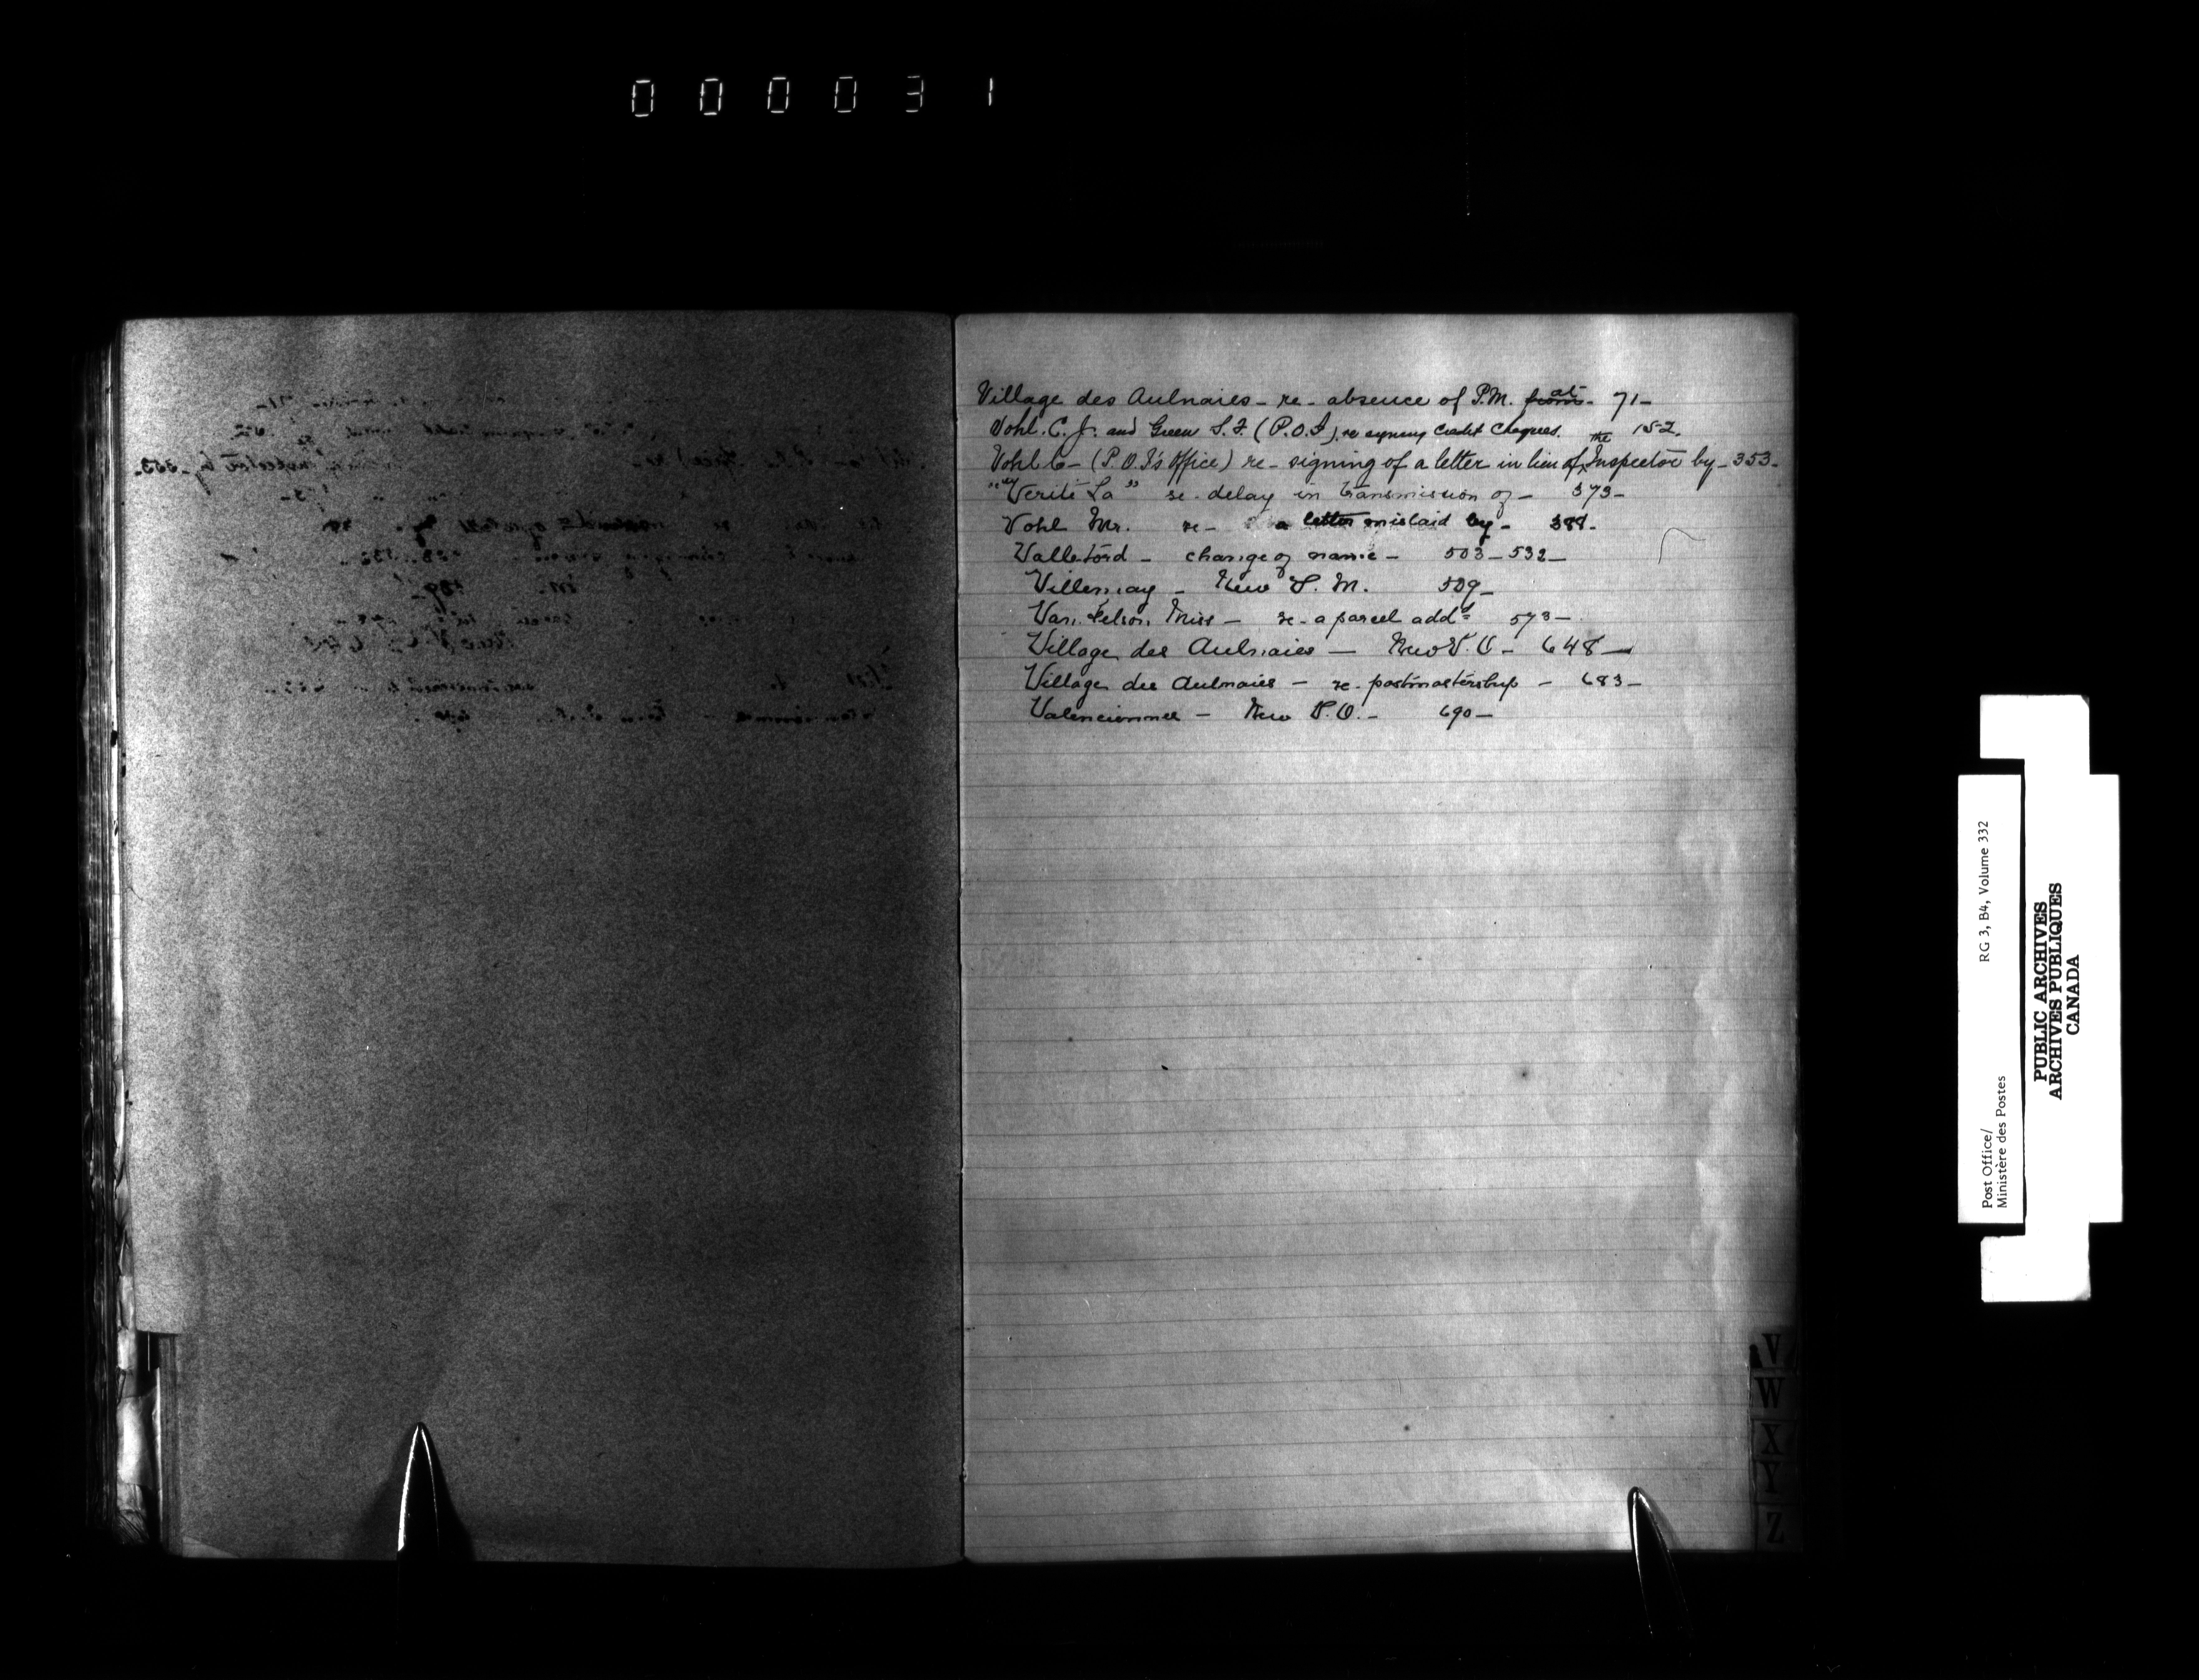 000031
Village des Aulnaies - re - absence of P.M. from at - 71 -
Vohl. C. J. and Green S. F. (P.O.I) re signing Credit Cheques. 152.
Vohl C - (P.O.I's Office) re - signing of a letter in lieu of the Inspector by - 353 -
"Verité La" re - delay in transmission of - 373 -
Vohl Mr. re - a letter mislaid by - 388 -
Valletord - change of name - 503 - 532 -
Villemay - New P.M. 509 -
Van Felson Miss - re - a parcel addd 573 -
Village des Aulnaies - New P.O - 648 -
Village des Aulnaies - re - postmastership - 683 -
Valencienne - New P.O. - 690 -
V
W
X
Y
Z
Post Office/ RG 3, B4, Volume 332
Ministère des Postes
PUBLIC ARCHIVES
ARCHIVES PUBLIQUES
CANADA